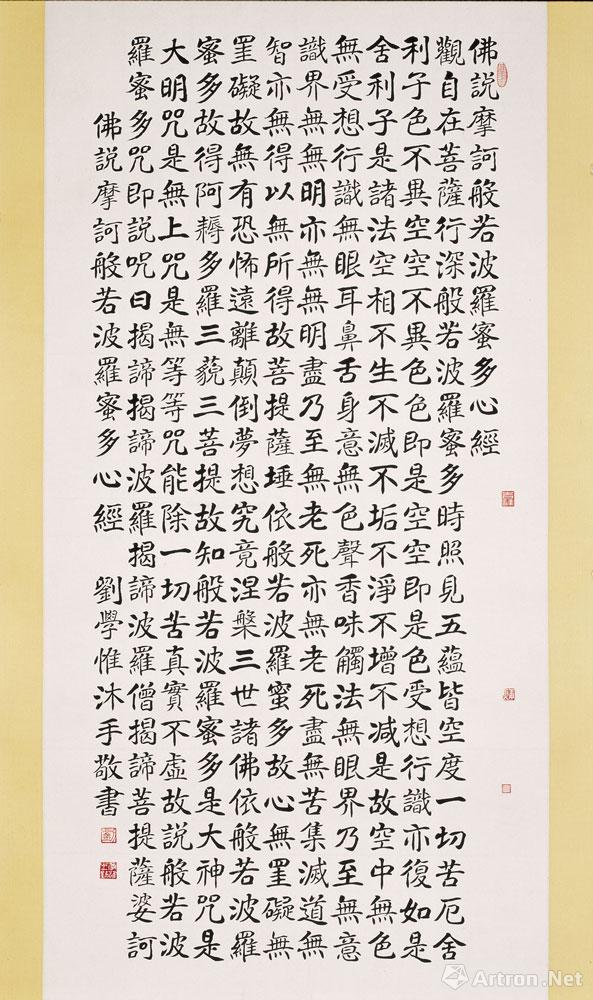 佛説摩訶般若波羅蜜多心經
觀自在菩薩行深般若波羅蜜多時照見五蘊皆空度一切苦厄舍
利子色不異空空不異色色即是空空即是色受想行識亦復如是
舍利子是諸法空相不生不滅不垢不淨不增不减是故空中無色
無受想行識無眼耳鼻舌身意無色聲香味觸法無眼界乃至無意
識界無無明亦無無明盡乃至無老死亦無老死盡無苦集滅道無
智亦無得以無所得故菩提薩埵依般若波羅蜜多故心無罣礙無
罣礙故無有恐怖遠離顛倒夢想究竟涅槃三世諸佛依般若波羅
蜜多故得阿耨多羅三藐三菩提故知般若波羅蜜多是大神咒是
大明咒是無上咒是無等等咒能除一切苦真實不虛故説般若波
羅蜜多咒即説呪曰揭諦揭諦波羅揭諦波羅僧揭諦菩提薩婆訶
佛説摩訶般若波羅蜜多心經 劉學惟沐手敬書
Artron.Net